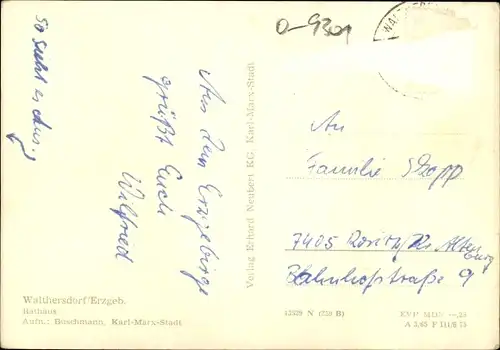 0-9301
So sieht es aus.
Aus dem Erzgebirge
grüßt Euch
Wilfried
Walthersdorf/Erzgeb.
Rathaus
Aufn.: Boschmann, Karl-Marx-Stadt
Verlag Erhard Neubert KG. Karl-Marx-Stadt
An
Familie
7405 Rositz/Kr. Altenburg
Bahnhofstraße 9
12529 N (220 B)
EVP MDN
A 3/65 F III/6 73